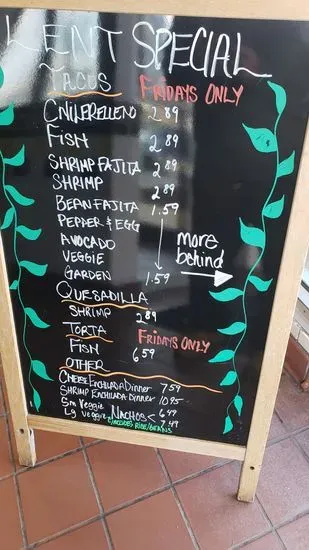 LENT SPECIAL
TACOS FRIDAYS ONLY
CHILERELLENO 2.89
FISH 2.89
SHRIMP FAJITA 2.89
SHRIMP 2.89
BEAN FAJITA 1.59
PEPPER & EGG
AVOCADO
VEGGIE
GARDEN 1.59
more behind
QUESADILLA
SHRIMP 2.89
TORTA FRIDAYS ONLY
FISH 6.59
OTHER
CHEESE ENCHILADA Dinner 7.59
SHRIMP ENCHILADA Dinner 10.95
Sm Veggie NACHOS < 6.49
Lg Veggie 7.49
INCLUDES RICE/BEANS